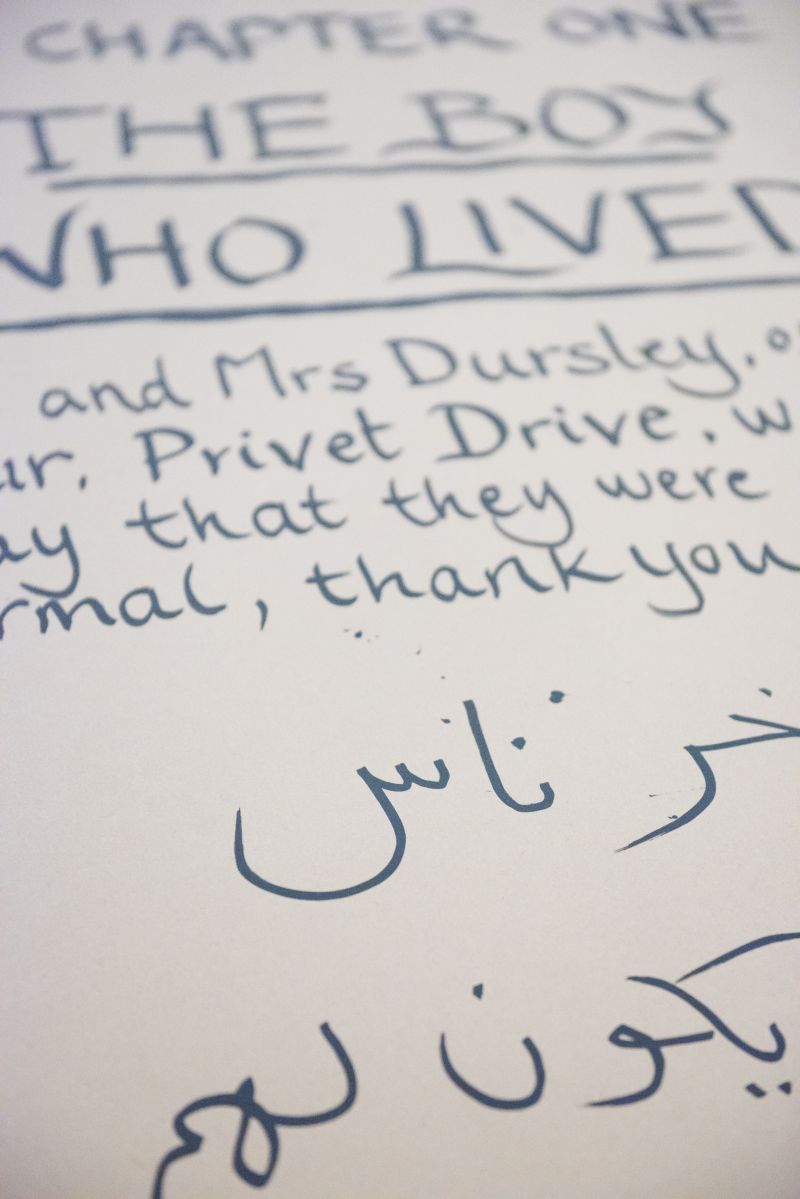 CHAPTER ONE
THE BOY
WHO LIVED
and Mrs Dursley, of
ur, Privet Drive, w
ay that they were
rmal, thank you
خر ناس
يكون لهم